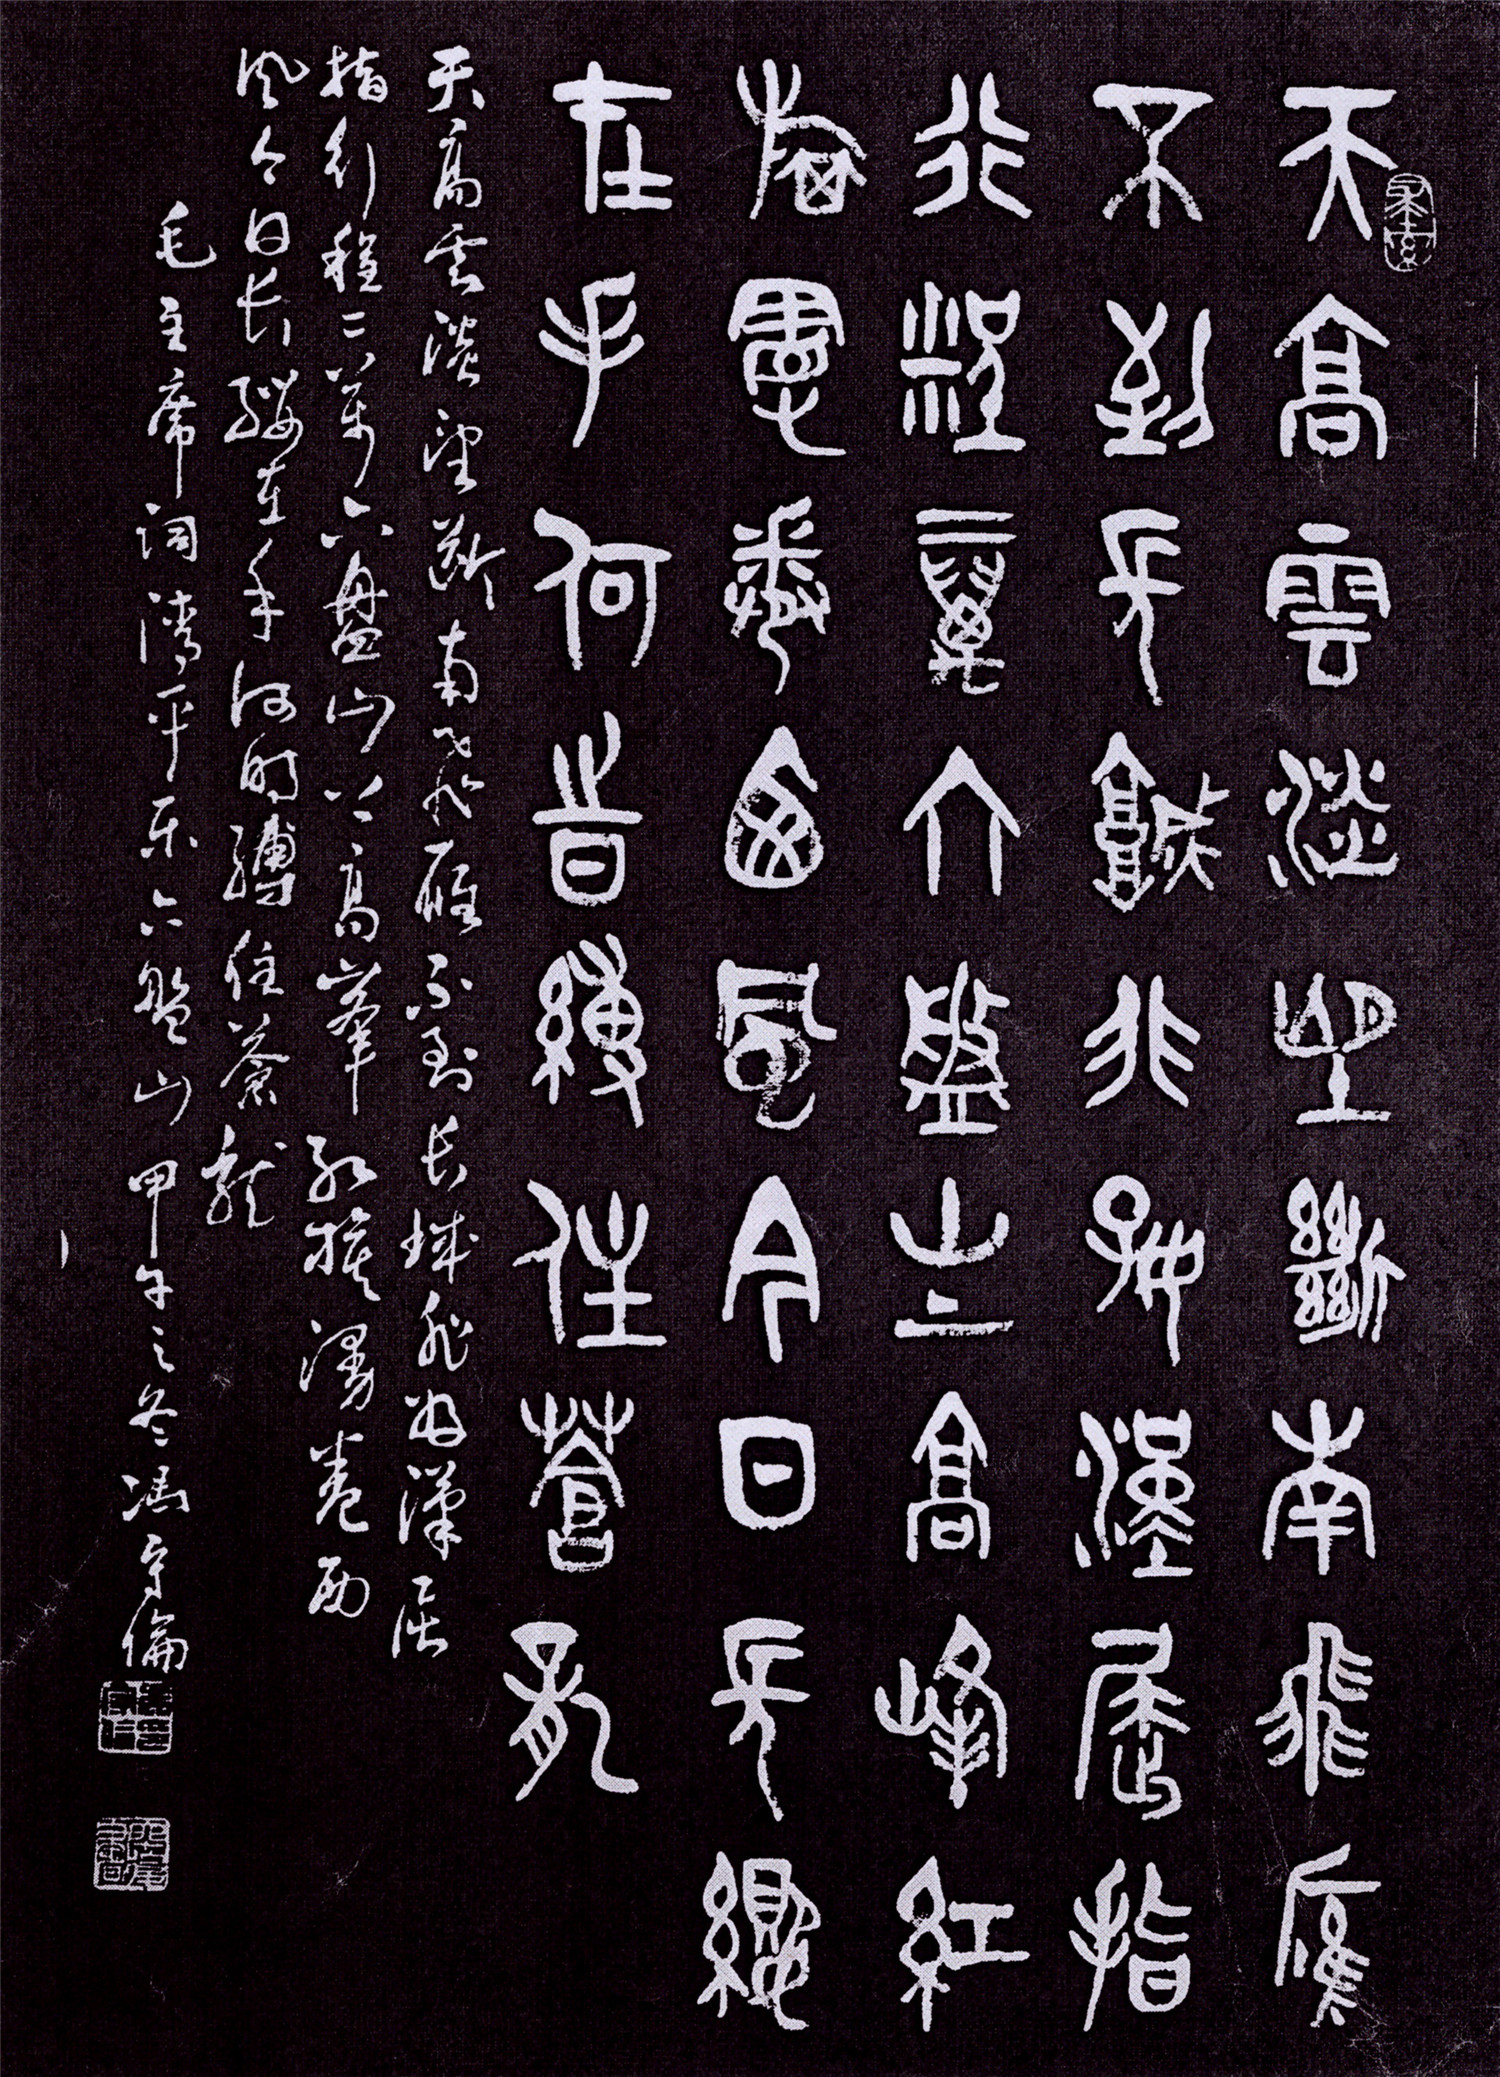 天高雲淡望斷南飛雁
不到長城非好漢屈指
行程二萬六盤山上高峰紅
旗漫卷西風今日長纓
在手何時縛住蒼龍
天高雲淡望斷南飞雁不到长城非好漢屈
指行程二萬六盤山上高峯红旗漫卷西
风今日长纓在手何时縛住蒼龍
毛主席词清平乐六盤山甲午之冬馮倫